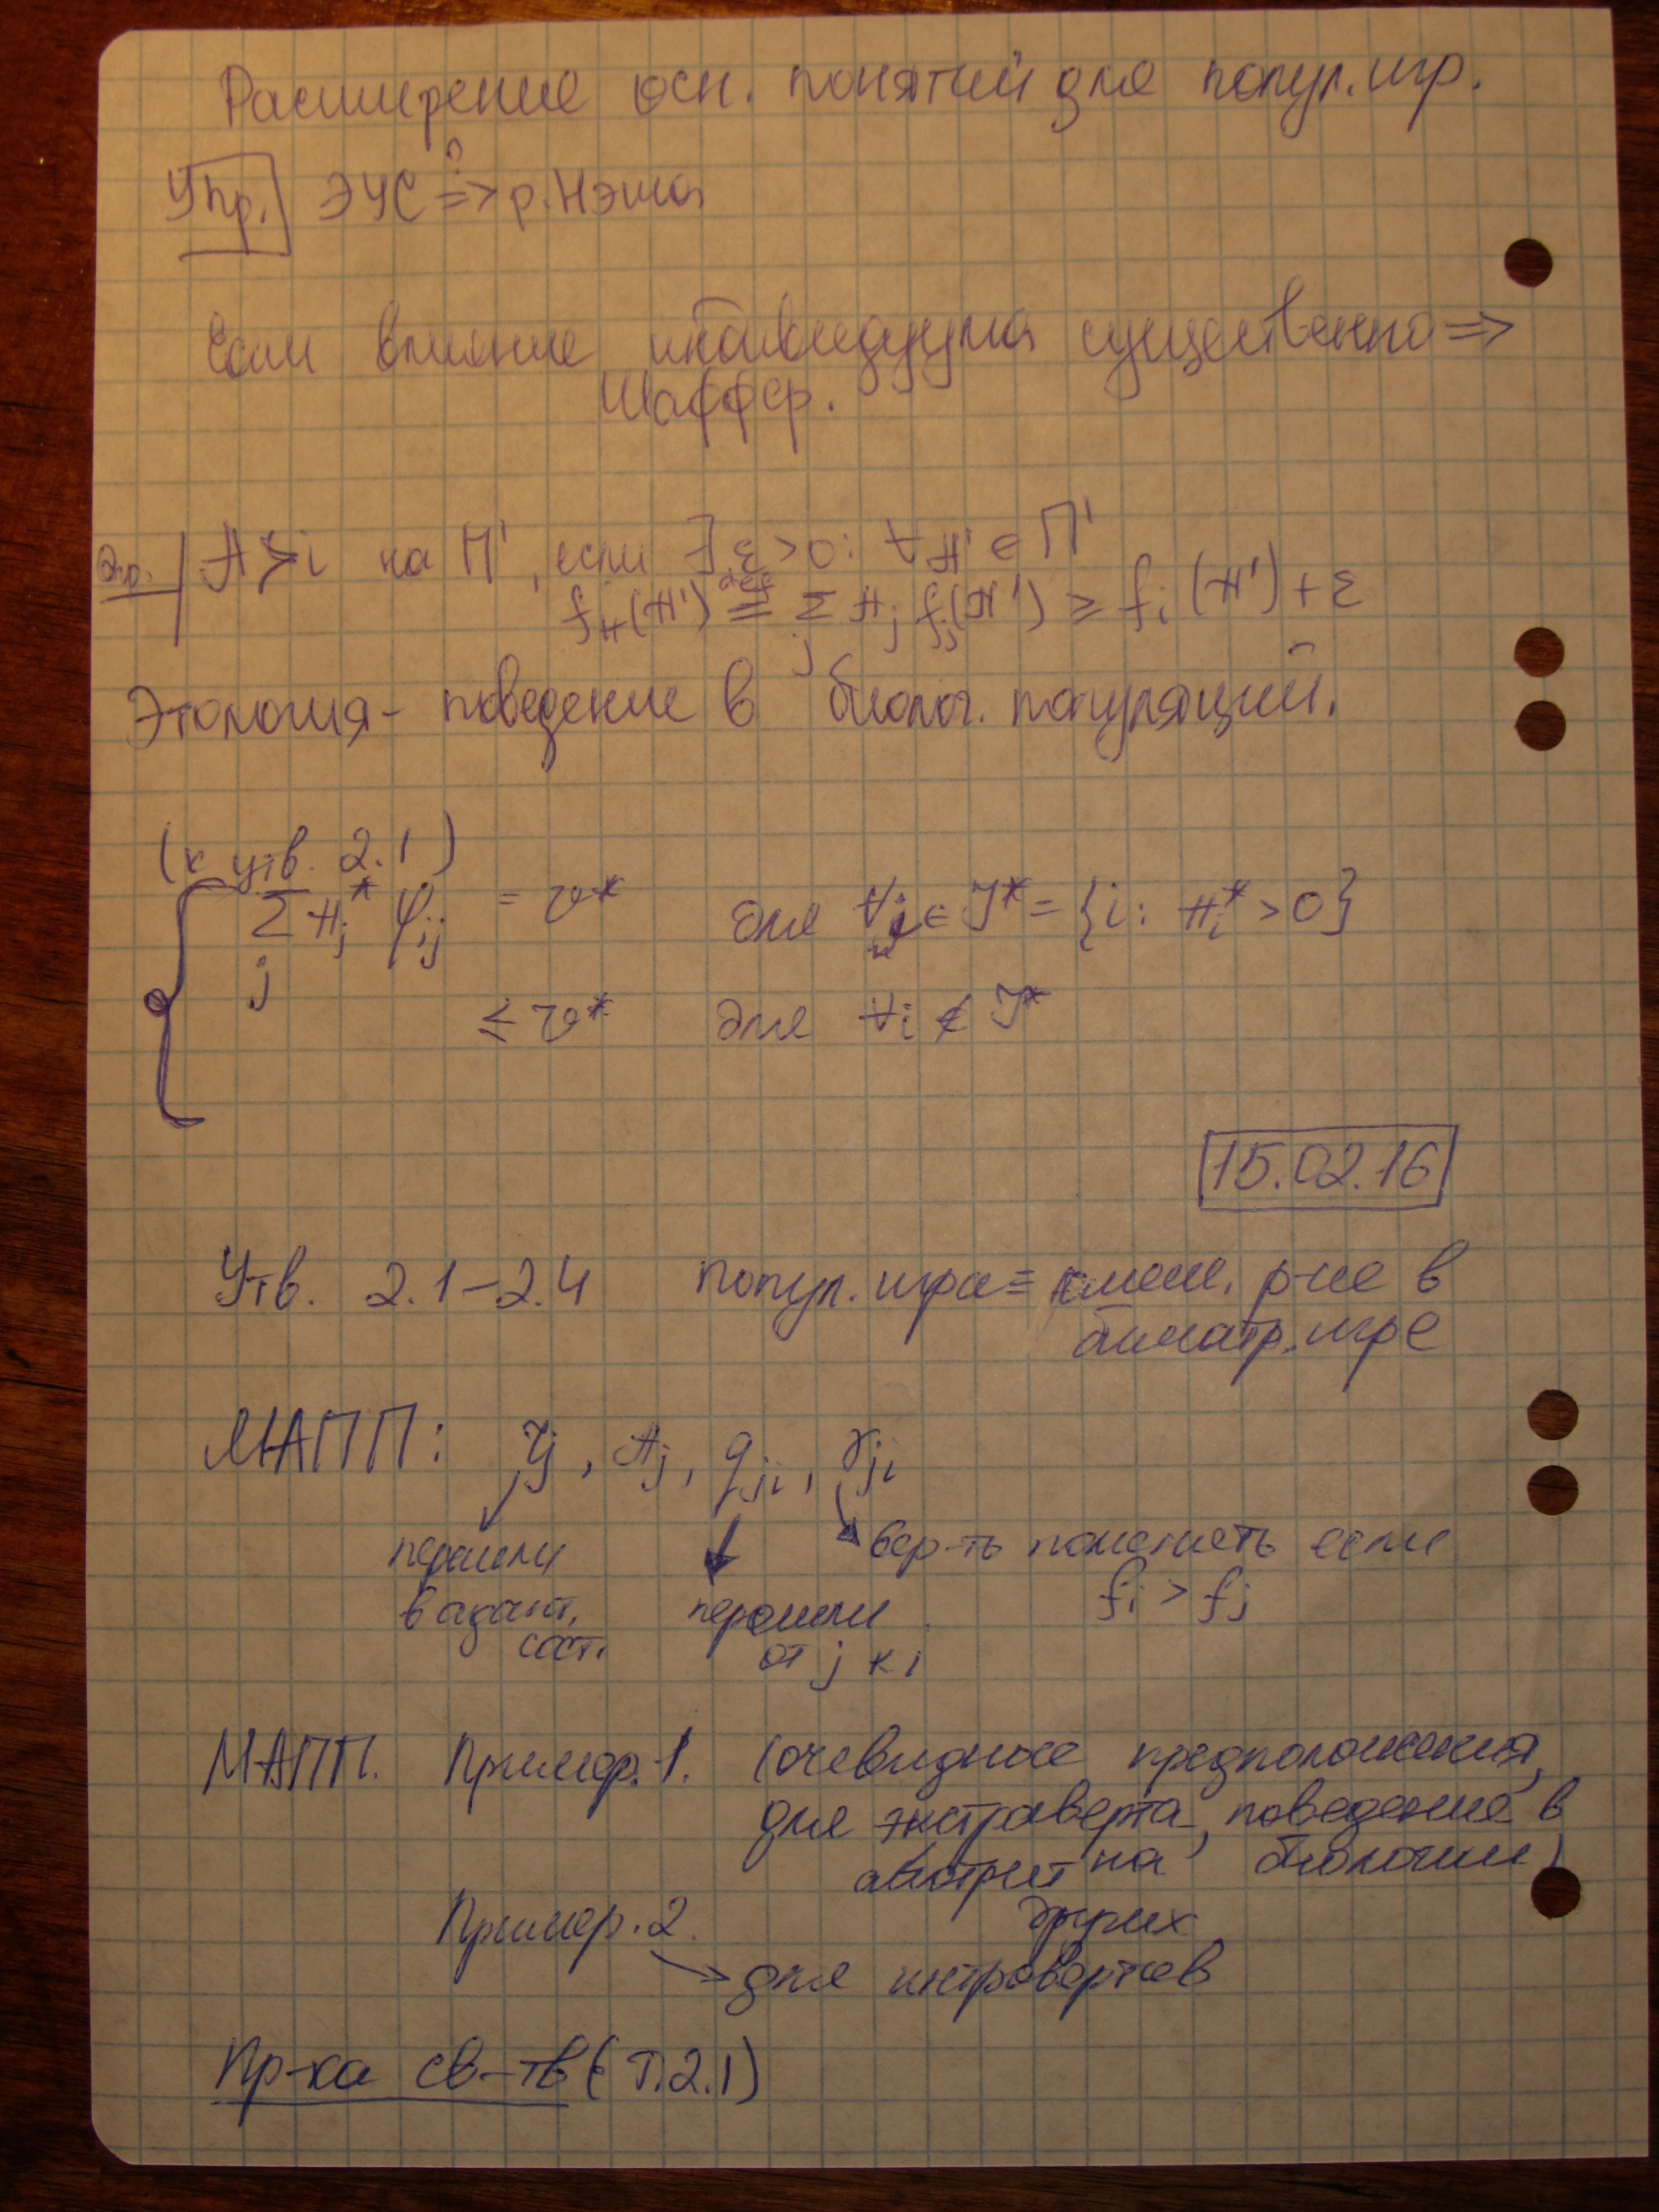 Расширение осн. понятий для попул. игр.
Упр. ЭУС ?=> р. Нэша
Если влияние индивидуума существенно =>
Шаффер.
π ≻ i на Π', если ∃ ε > 0: ∀ π' ∈ Π'
f_π(π') def= Σ_j π_j f_j(π') ≥ f_i(π') + ε
Этология - поведение в биолог. популяций.
(к утв. 2.1)
Σ_j π_j* φ_ij = v* для ∀ i ∈ J* = {i: π_i* > 0}
≤ v* для ∀ i ∉ J*
15.02.16
Утв. 2.1-2.4 попул. игра = смеш. р-ие в
биматр. игре
МАПП: r_j, π_j, q_ji, γ_ji
перешли вер-ть поменять если
в адапт. перешли f_i > f_j
сост. от j к i
МАПП. Пример. 1. (очевидные предположения,
для экстраверта, поведение в
смотрит на биологии)
Пример. 2. других
для интровертов
Пр-ка св-тв (Т.2.1)